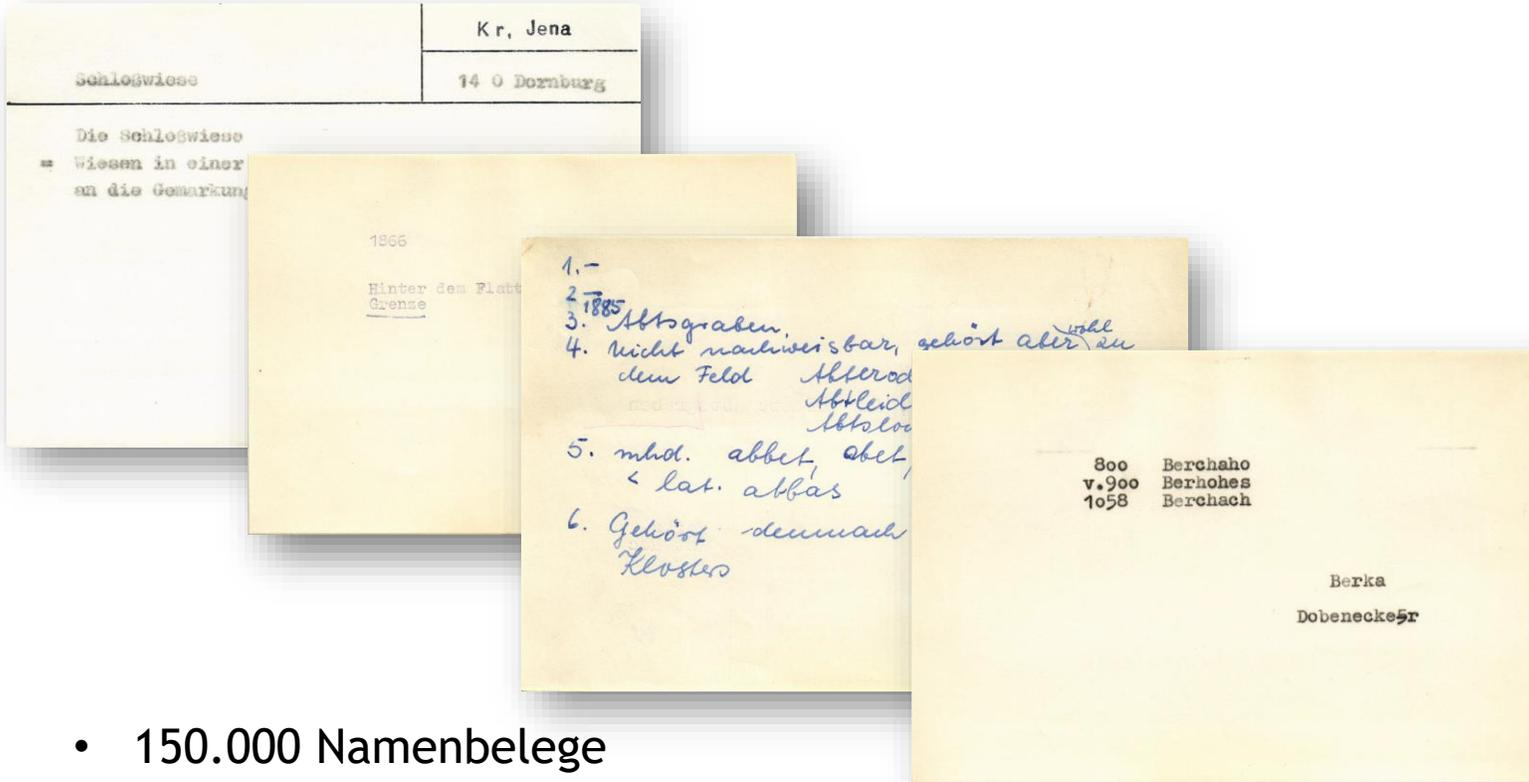 Kr, Jena
Schloßwiese
14 0 Dornburg
Die Schloßwiese
= Wiesen in einer
an die Gemarkung
1866
Hinter dem Flatt
Grenze
1.-
2.-
1885
3. Abtsgraben.
4. nicht nachweisbar, gehört aber wohl zu
dem Feld Abterod
Abtleid
Abtslo
5. mhd. abbet, abet,
< lat. abbas
6. Gehört demnach
Klosters
800 Berchaho
v.900 Berhohes
1058 Berchach
Berka
Dobenecker
• 150.000 Namenbelege